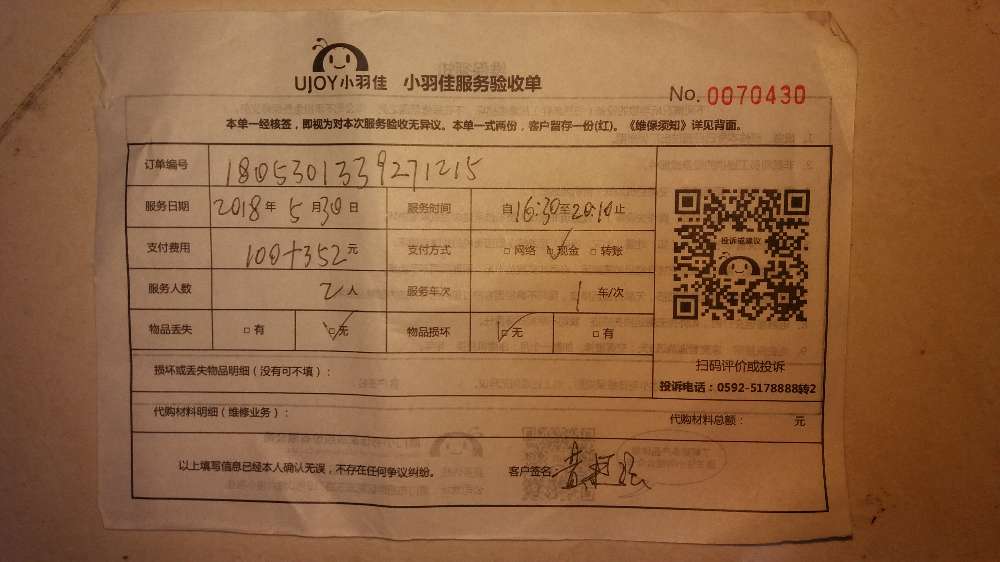 UJOY小羽佳 小羽佳服务验收单
No. 0070430
本单一经核签，即视为对本次服务验收无异议。本单一式两份，客户留存一份(红)。《维保须知》详见背面。
订单编号 1805301339271215
服务日期 2018年 5月30日 服务时间 自16:30至20:10止
支付费用 100+352元 支付方式 □网络 □✓现金 □转账
投诉或建议
服务人数 2人 服务车次 1 车/次
物品丢失 □有 □✓无 物品损坏 □✓无 □有
扫码评价或投诉
损坏或丢失物品明细（没有可不填）：
投诉电话：0592-5178888转2
代购材料明细（维修业务）： 代购材料总额： 元
以上填写信息已经本人确认无误，不存在任何争议纠纷。 客户签名：